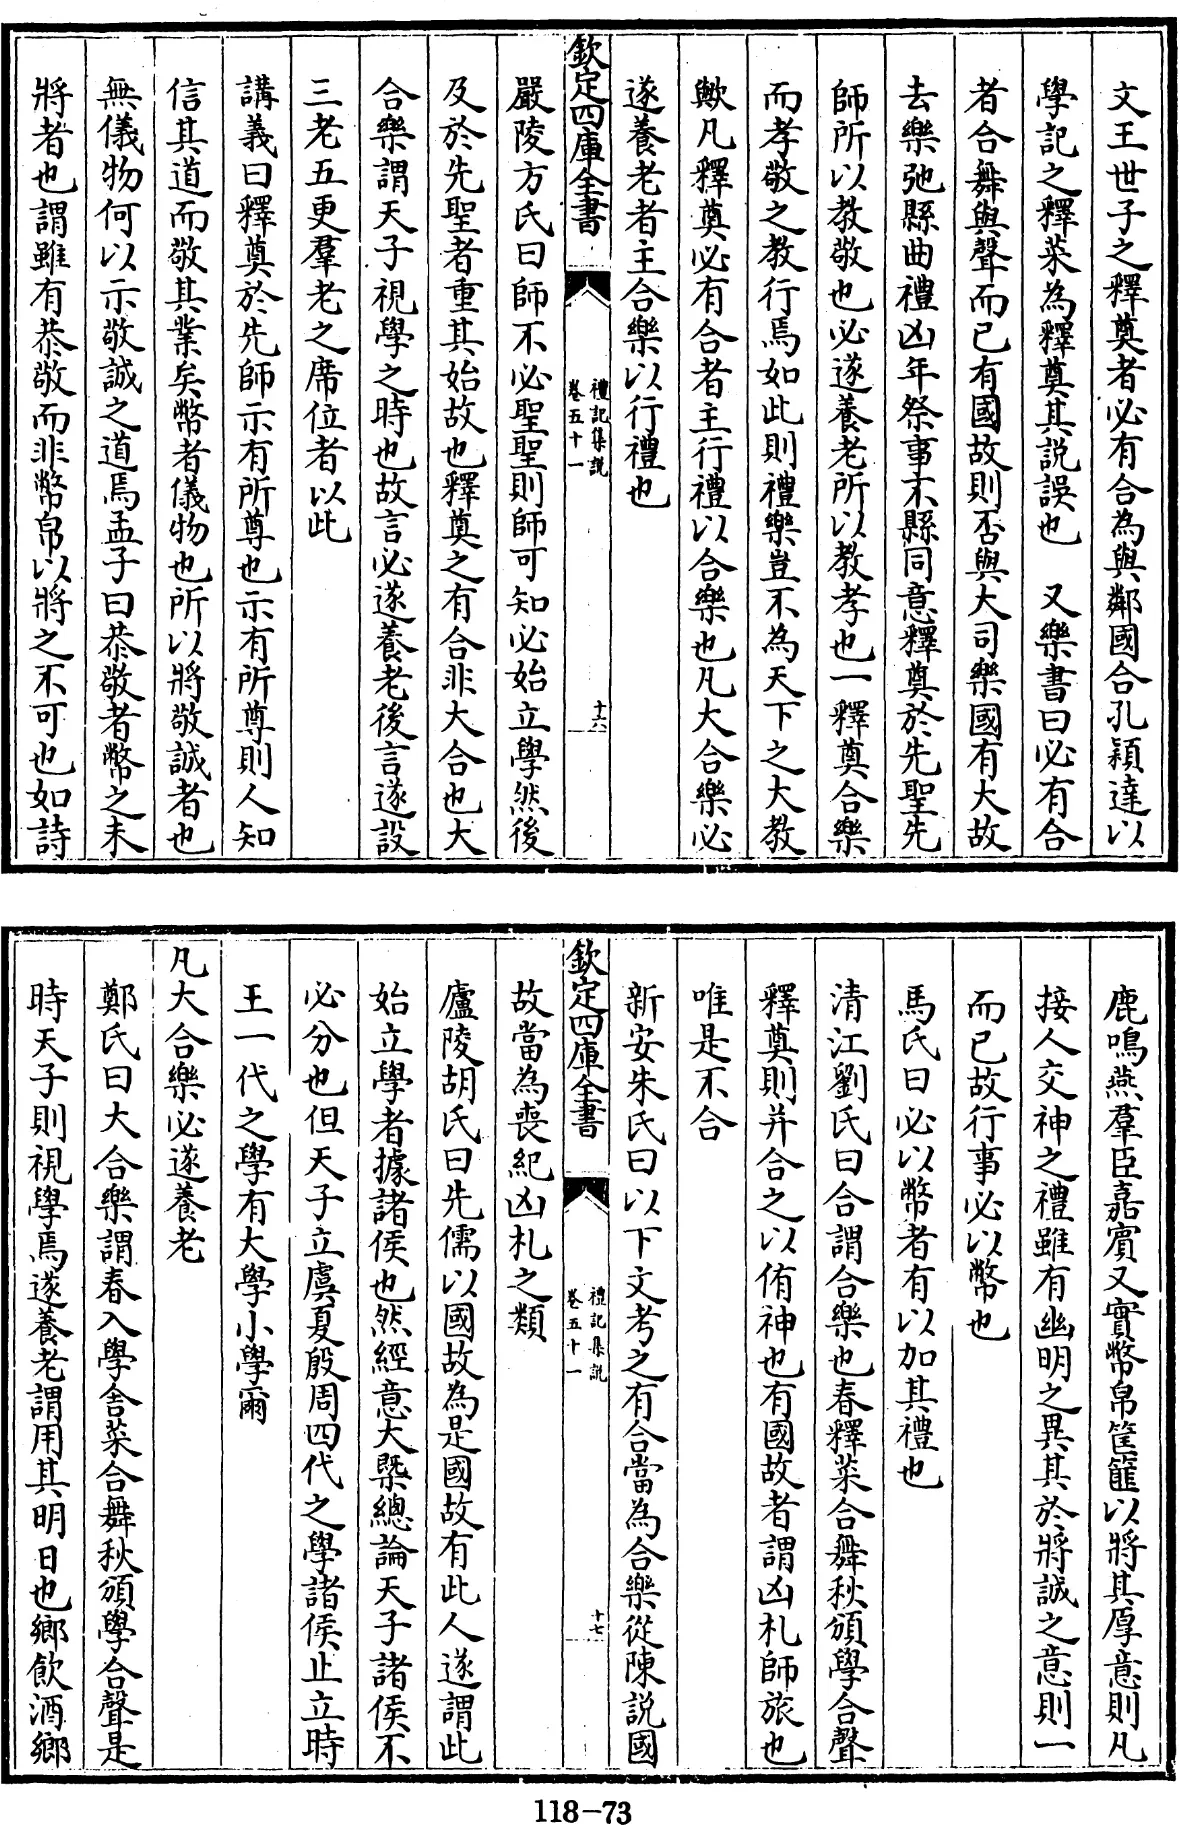 文王世子之釋奠者必有合為與鄰國合孔穎達以
學記之釋菜為釋奠其説誤也　又樂書曰必有合
者合舞與聲而已有國故則否與大司樂國有大故
去樂弛縣曲禮凶年祭事不縣同意釋奠於先聖先
師所以教敬也必遂養老所以教孝也一釋奠合樂
而孝敬之教行焉如此則禮樂豈不為天下之大教
歟凡釋奠必有合者主行禮以合樂也凡大合樂必
遂養老者主合樂以行禮也
欽定四庫全書
禮記集説
卷五十一
十六
嚴陵方氏曰師不必聖聖則師可知必始立學然後
及於先聖者重其始故也釋奠之有合非大合也大
合樂謂天子視學之時也故言必遂養老後言遂設
三老五更羣老之席位者以此
講義曰釋奠於先師示有所尊也示有所尊則人知
信其道而敬其業矣幣者儀物也所以將敬誠者也
無儀物何以示敬誠之道焉孟子曰恭敬者幣之未
將者也謂雖有恭敬而非幣帛以將之不可也如詩
鹿鳴燕羣臣嘉賓又實幣帛筐篚以將其厚意則凡
接人交神之禮雖有幽明之異其於將誠之意則一
而已故行事必以幣也
馬氏曰必以幣者有以加其禮也
清江劉氏曰合謂合樂也春釋菜合舞秋頒學合聲
釋奠則并合之以侑神也有國故者謂凶札師旅也
唯是不合
新安朱氏曰以下文考之有合當為合樂從陳説國
欽定四庫全書
禮記集説
卷五十一
十七
故當為喪紀凶札之類
廬陵胡氏曰先儒以國故為是國故有此人遂謂此
始立學者據諸侯也然經意大槩總論天子諸侯不
必分也但天子立虞夏殷周四代之學諸侯止立時
王一代之學有大學小學爾
凡大合樂必遂養老
鄭氏曰大合樂謂春入學舍菜合舞秋頒學合聲是
時天子則視學焉遂養老謂用其明日也鄉飲酒鄉
118-73